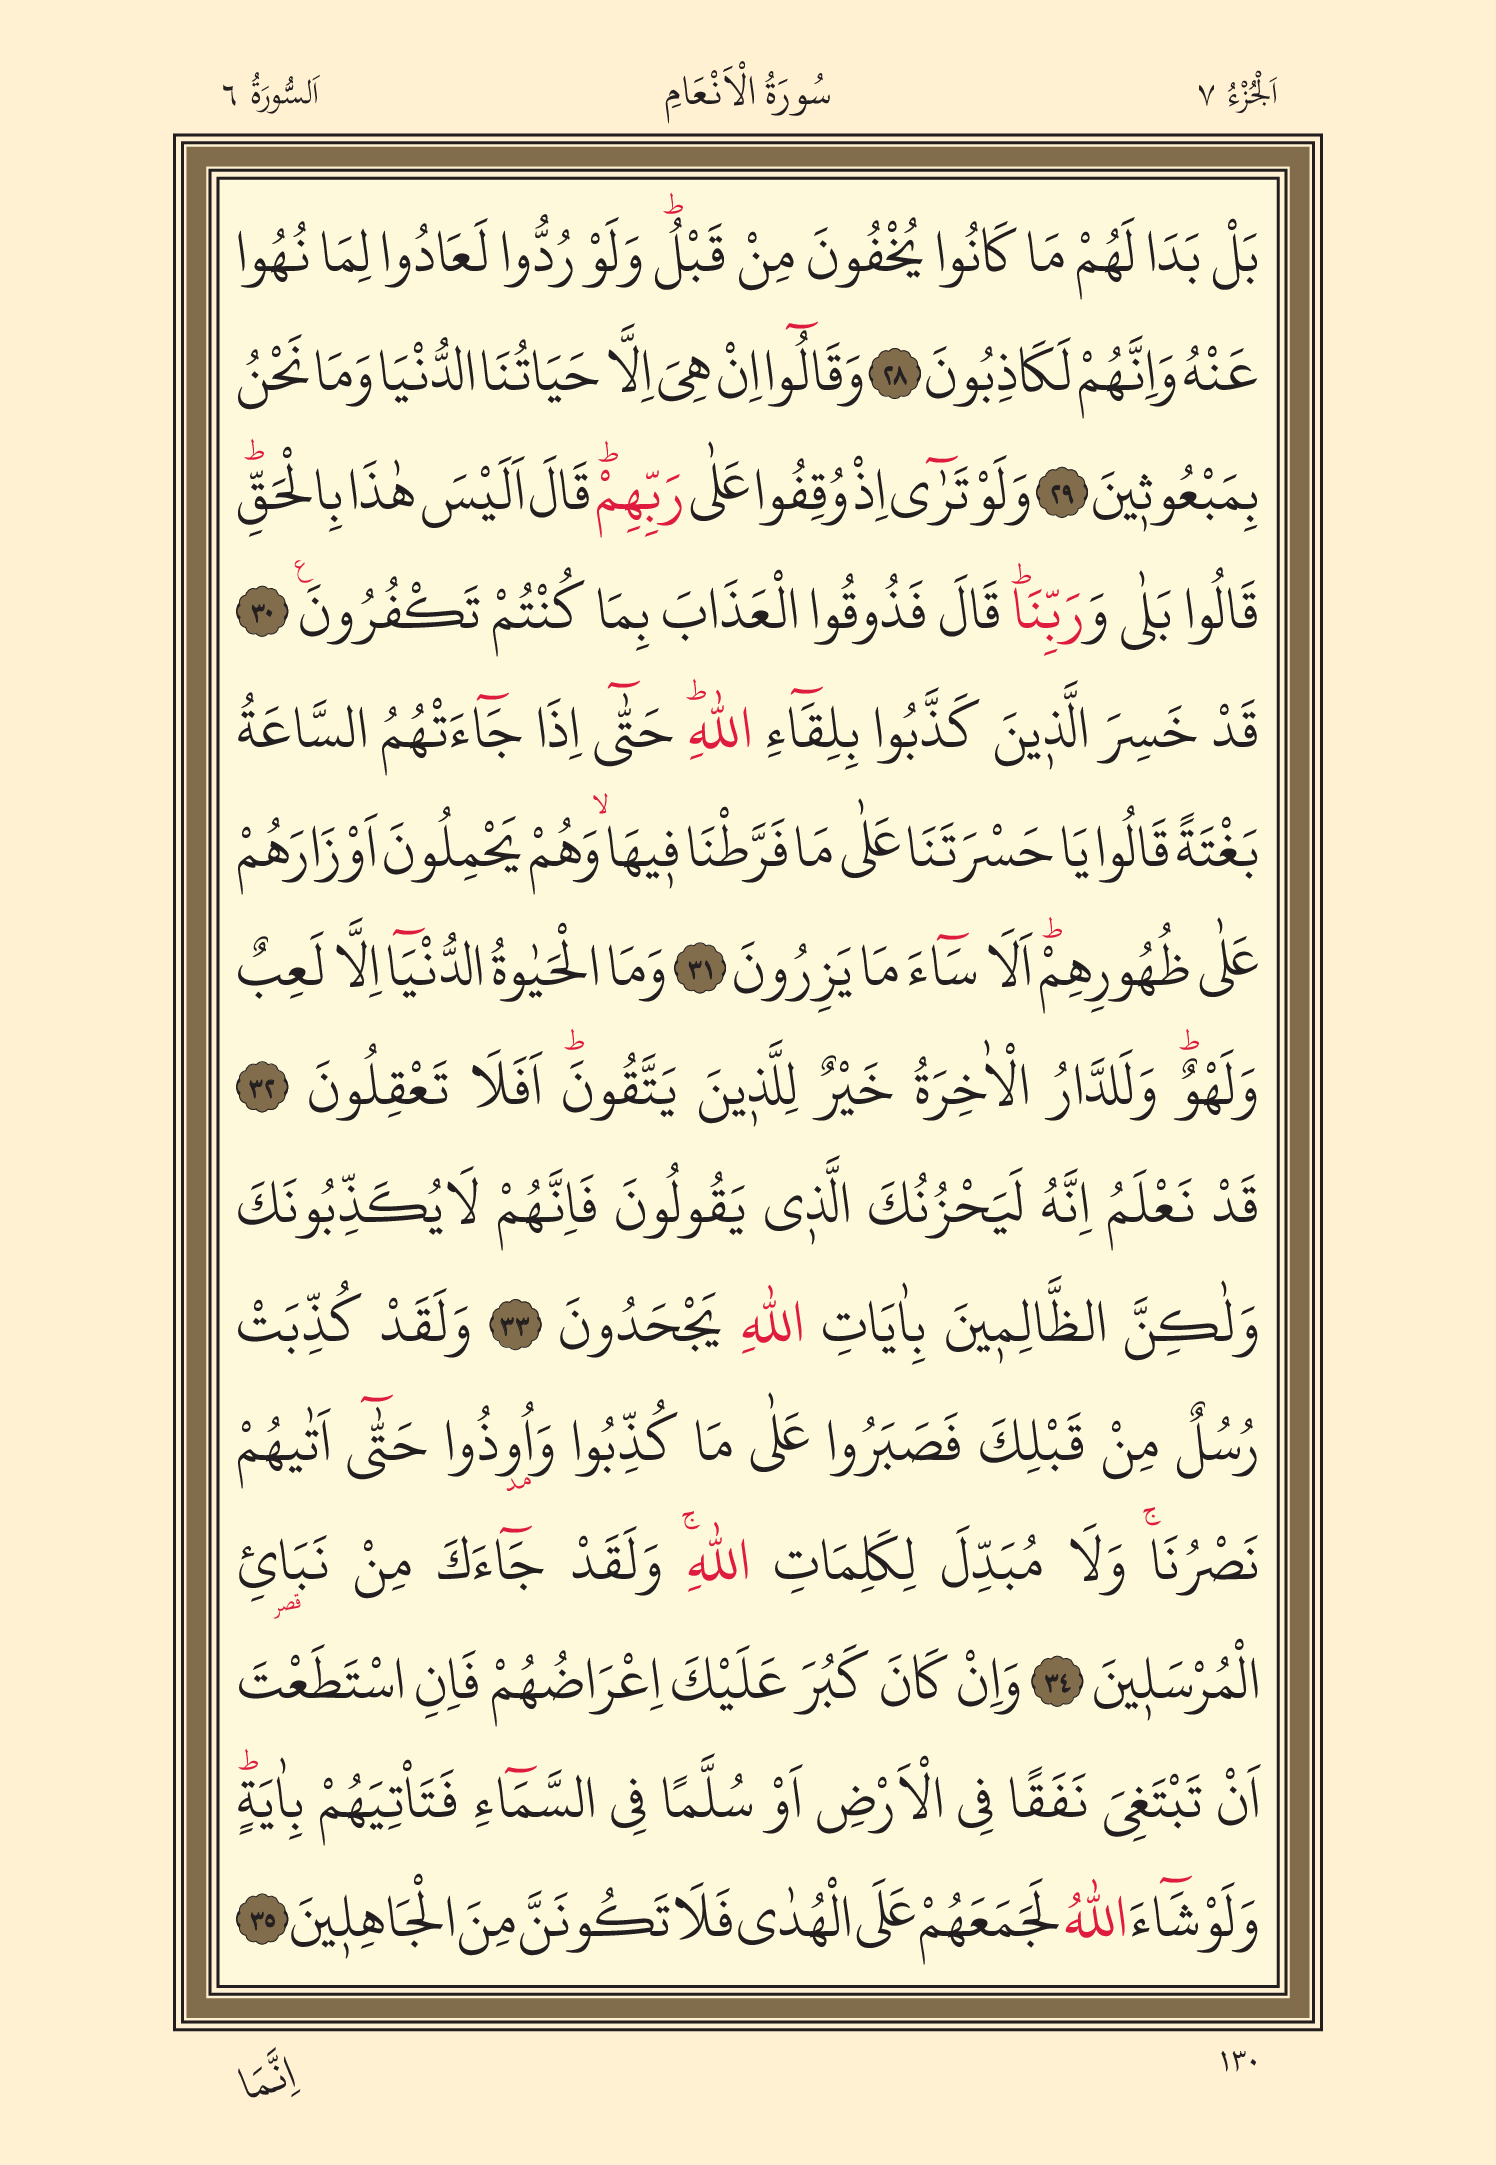 اَلْجُزْءُ ٧
سُورَةُ الْاَنْعَامِ
اَلسُّورَةُ ٦
بَلْ بَدَا لَهُمْ مَا كَانُوا يُخْفُونَ مِنْ قَبْلُۜ وَلَوْ رُدُّوا لَعَادُوا لِمَا نُهُوا
عَنْهُ وَاِنَّهُمْ لَكَاذِبُونَ ﴿٢٨﴾ وَقَالُٓوا اِنْ هِىَ اِلَّا حَيَاتُنَا الدُّنْيَا وَمَا نَحْنُ
بِمَبْعُوث۪ينَ ﴿٢٩﴾ وَلَوْ تَرٰٓى اِذْ وُقِفُوا عَلٰى رَبِّهِمْۜ قَالَ اَلَيْسَ هٰذَا بِالْحَقِّۜ
قَالُوا بَلٰى وَرَبِّنَاۜ قَالَ فَذُوقُوا الْعَذَابَ بِمَا كُنْتُمْ تَكْفُرُونَ۟ ﴿٣٠﴾
قَدْ خَسِرَ الَّذ۪ينَ كَذَّبُوا بِلِقَٓاءِ اللّٰهِۜ حَتّٰٓى اِذَا جَٓاءَتْهُمُ السَّاعَةُ
بَغْتَةً قَالُوا يَا حَسْرَتَنَا عَلٰى مَا فَرَّطْنَا ف۪يهَاۙ وَهُمْ يَحْمِلُونَ اَوْزَارَهُمْ
عَلٰى ظُهُورِهِمْۜ اَلَا سَٓاءَ مَا يَزِرُونَ ﴿٣١﴾ وَمَا الْحَيٰوةُ الدُّنْيَٓا اِلَّا لَعِبٌ
وَلَهْوٌۜ وَلَلدَّارُ الْاٰخِرَةُ خَيْرٌ لِلَّذ۪ينَ يَتَّقُونَۜ اَفَلَا تَعْقِلُونَ ﴿٣٢﴾
قَدْ نَعْلَمُ اِنَّهُ لَيَحْزُنُكَ الَّذ۪ى يَقُولُونَ فَاِنَّهُمْ لَا يُكَذِّبُونَكَ
وَلٰكِنَّ الظَّالِم۪ينَ بِاٰيَاتِ اللّٰهِ يَجْحَدُونَ ﴿٣٣﴾ وَلَقَدْ كُذِّبَتْ
رُسُلٌ مِنْ قَبْلِكَ فَصَبَرُوا عَلٰى مَا كُذِّبُوا وَاُو۫ذُوا حَتّٰٓى اَتٰيهُمْ
مد
نَصْرُنَاۚ وَلَا مُبَدِّلَ لِكَلِمَاتِ اللّٰهِۚ وَلَقَدْ جَٓاءَكَ مِنْ نَبَائِ
قصر
الْمُرْسَل۪ينَ ﴿٣٤﴾ وَاِنْ كَانَ كَبُرَ عَلَيْكَ اِعْرَاضُهُمْ فَاِنِ اسْتَطَعْتَ
اَنْ تَبْتَغِىَ نَفَقًا فِى الْاَرْضِ اَوْ سُلَّمًا فِى السَّمَٓاءِ فَتَاْتِيَهُمْ بِاٰيَةٍۜ
وَلَوْ شَٓاءَ اللّٰهُ لَجَمَعَهُمْ عَلَى الْهُدٰى فَلَا تَكُونَنَّ مِنَ الْجَاهِل۪ينَ ﴿٣٥﴾
١٣٠
اِنَّمَا